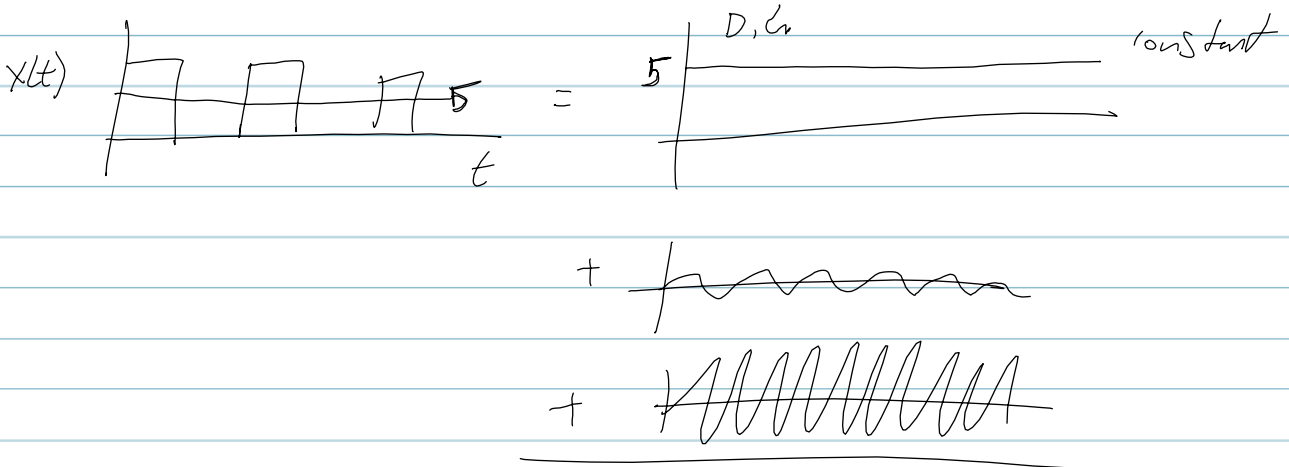 x(t)
5
t
=
D.C.
5
constant
+
+